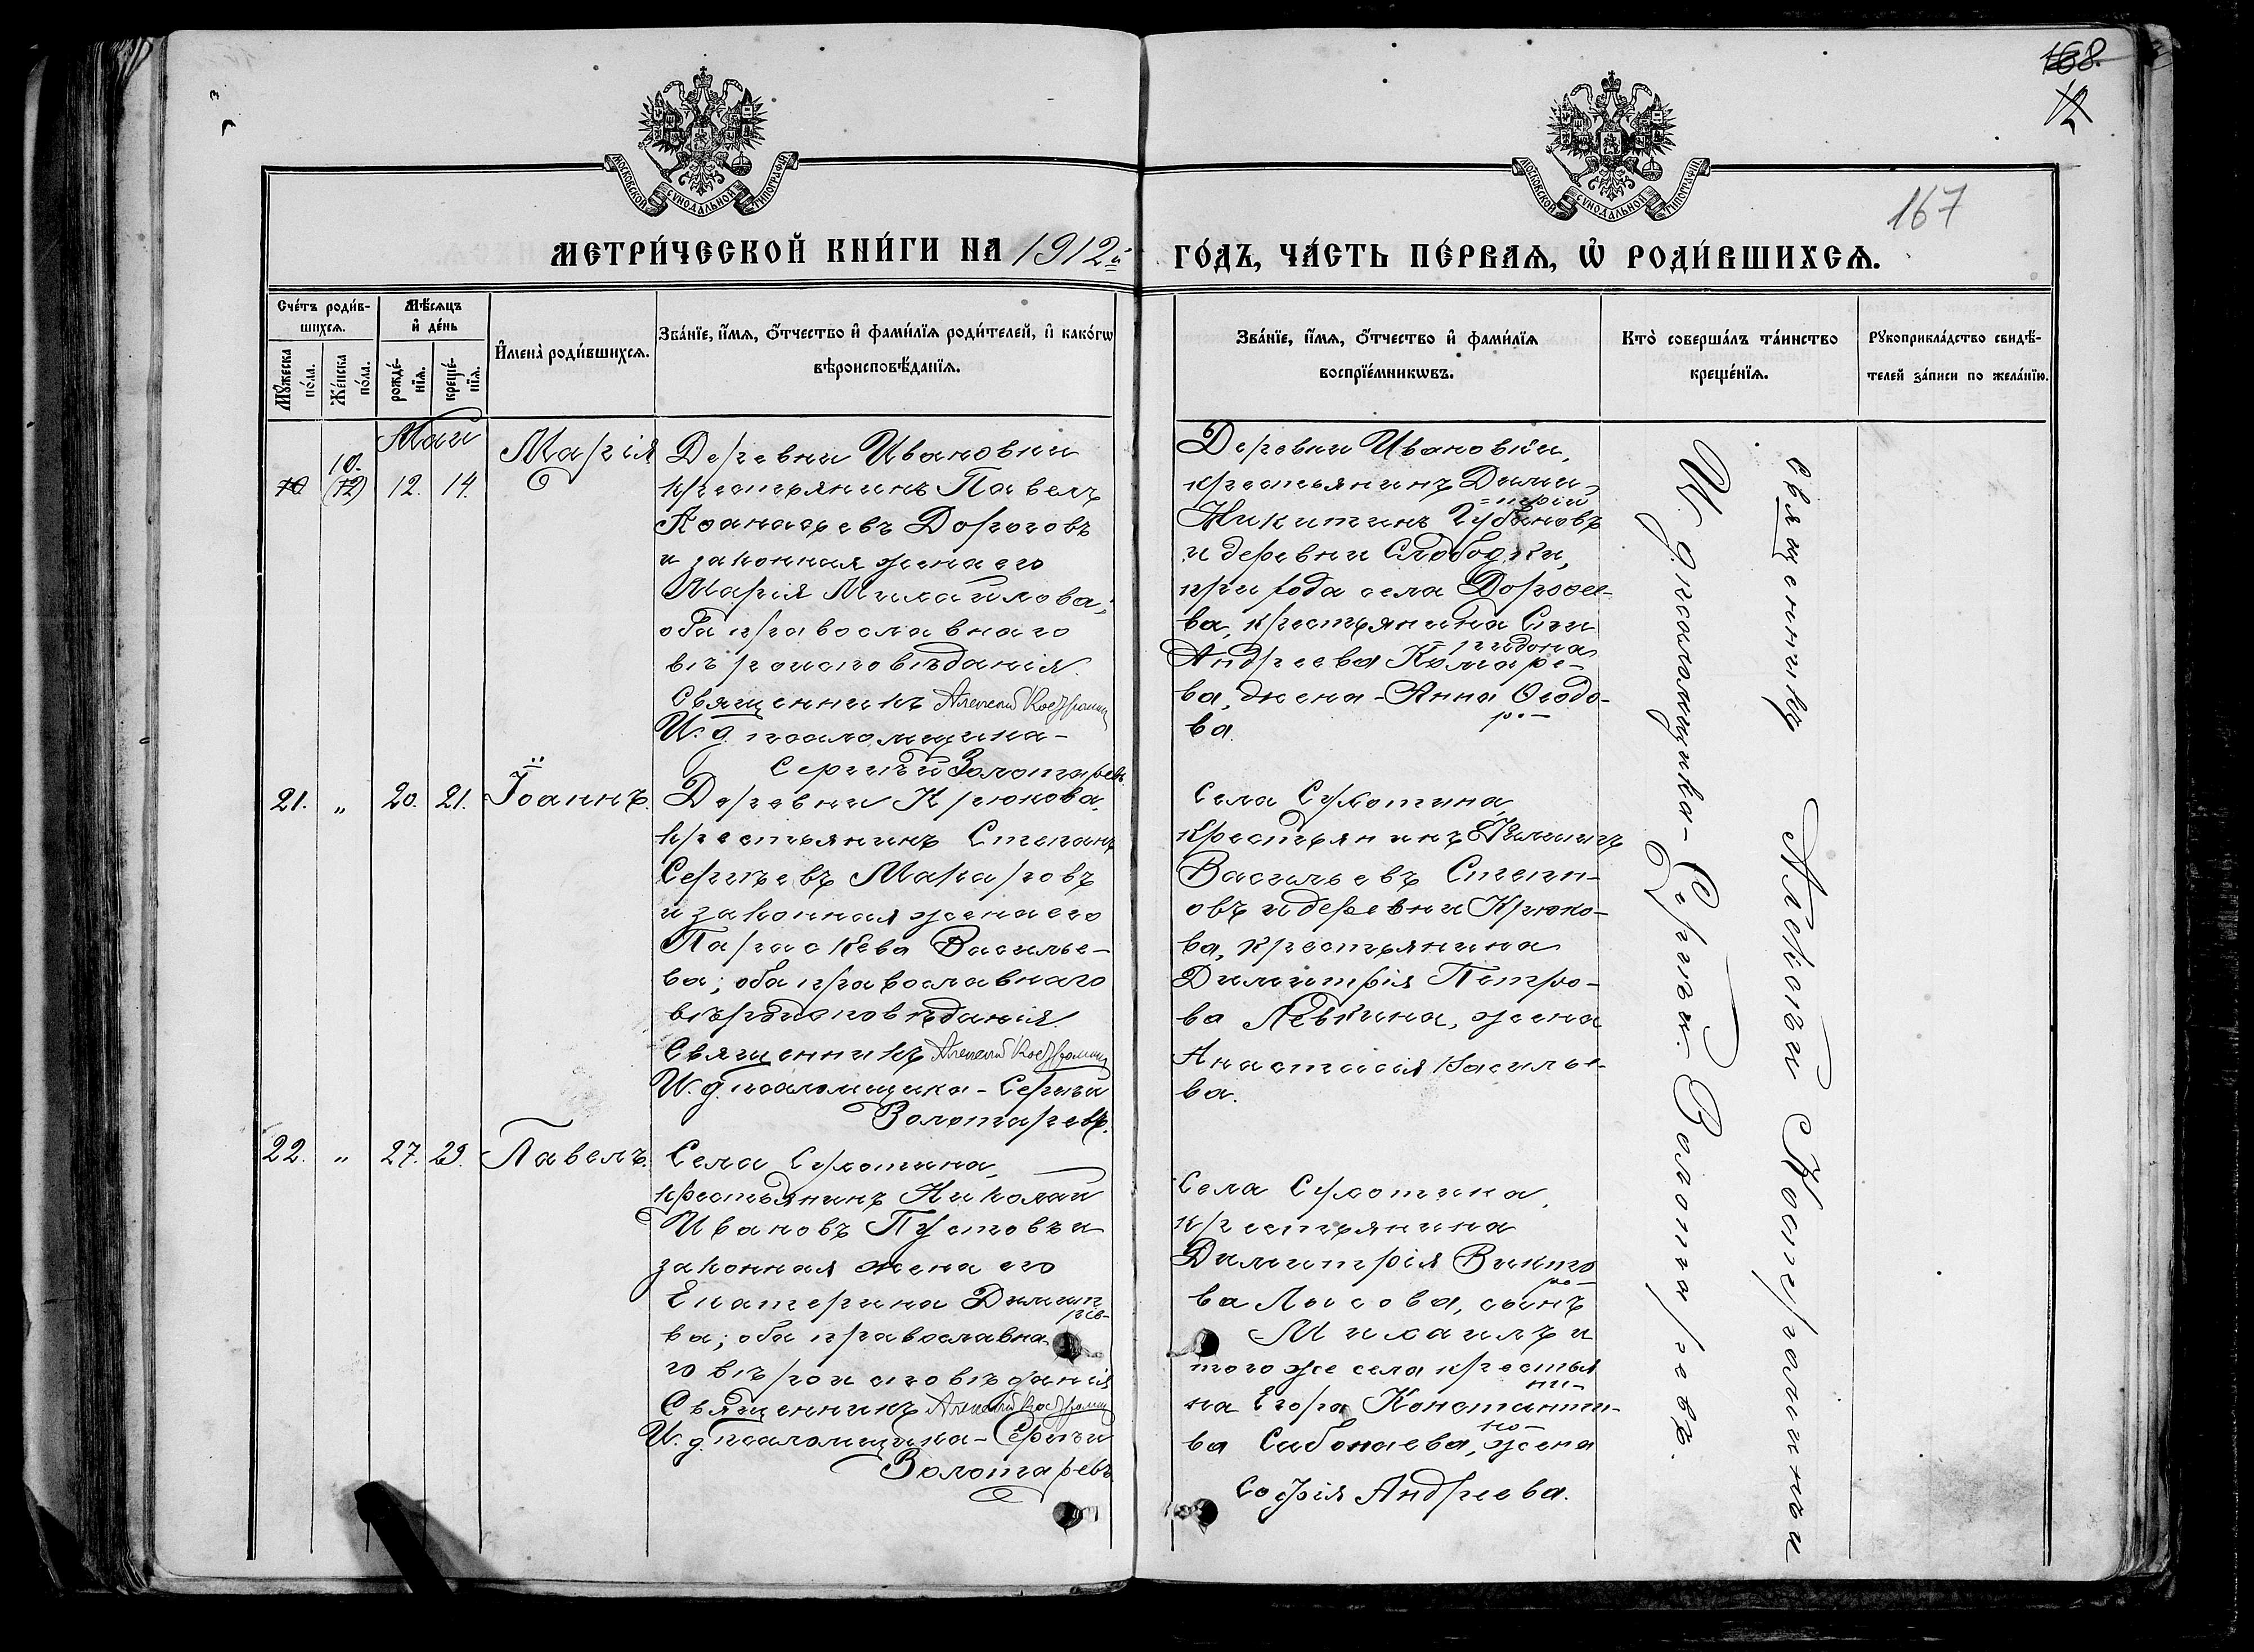 168.
12
167
МОСКОВСКОЙ СѴНОДАЛЬНОЙ ТИПОГРАФІИ
МОСКОВСКОЙ СѴНОДАЛЬНОЙ ТИПОГРАФІИ
МЕТРИ́ЧЕСКОЙ КНИ́ГИ НА 1912й
ГО́ДЪ, ЧА́СТЬ ПЕ́РВАѦ, Ѽ РОДИ́ВШИХСѦ.
Сче́тъ роди́в-
шихсѧ.
Мꙋ́жеска по́ла.
Же́нска по́ла.
Мѣ́сѧцъ
и҆ де́нь
рожде́-
нїѧ.
креще́-
нїѧ.
И҆мена̀ роди́вшихсѧ.
Зва́нїе, и҆́мѧ, ѻ҆́тчество и҆ фами́лїѧ роди́телей, и҆ како́гѡ
вѣроисповѣ́данїѧ.
Зва́нїе, и҆́мѧ, ѻ҆́тчество и҆ фами́лїѧ
воспрїе́мникѡвъ.
Кто̀ соверша́лъ та́инство
креще́нїѧ.
Рꙋкоприкла́дство свидѣ́-
телей за́писи по жела́нїю.
Май
10.
10 (12) 12. 14. Марія
Деревни Ивановки
крестьянинъ Павелъ
Аѳанасьевъ Дороговъ
и законная жена его
Марія Михайлова;
оба православнаго
вѣроисповѣданія.
Священникъ Алексей Костромин
И. д. псаломщика -
Сергѣй Золотаревъ.
Деревни Ивановки,
крестьянинъ Дими-
=трій
Никитинъ Губановъ
и деревни Слободки,
прихода села Дорофее-
ва, крестьянина Спи
ридона
Андреева Комаре-
ва, жена - Анна Ѳеодо-
ро-
ва.
21. " 20. 21. Іоаннъ.
Деревни Крюкова,
крестьянинъ Степанъ
Сергѣевъ Макаровъ
и законная жена его
Параскева Василье-
ва; оба православнаго
вѣроисповѣданія.
Священникъ Алексей Костромин
И. д. псаломщика - Сергѣй
Золотаревъ.
Села Сухотина,
крестьянинъ Филиппъ
Васильевъ
овъ и деревни Крюко-
ва, крестьянина
Димитрія Петро-
ва Левкина, жена
Анастасія Василье-
ва.
22. " 27. 29. Павелъ.
Села Сухотина,
крестьянинъ Николай
Ивановъ Пустовъ и
законная жена его
Екатерина Димит
ріе-
ва; оба православна
го вѣроисповѣданія
Священникъ Алексей Костромин
И. д. псаломщика - Сергѣй
Золотаревъ
Села Сухотина,
крестьянина
Димитрія Викто
ро-
ва Лысова, сынъ
Михаилъ и
того же села крестья
ни-
на Егора Константи-
но-
ва жена
Софія Андреева.
священникъ Алексѣй Костроминъ и
И. д. псаломщика - Сергѣй Золотаревъ.